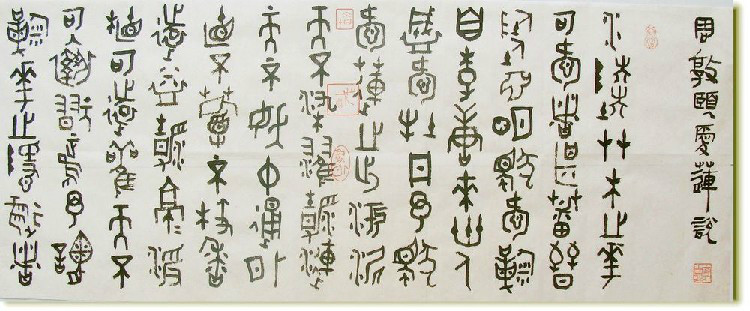 周敦頤愛蓮說
水陸艸木之華
可愛者甚蕃晉
陶淵明獨愛菊
自李唐來世人
甚愛牡丹予獨
愛蓮之出淤泥
而不染濯清漣
而不妖中通外
直不蔓不枝香
遠益清亭亭淨
植可遠觀而不
可褻翫焉予謂
菊華之隱逸者